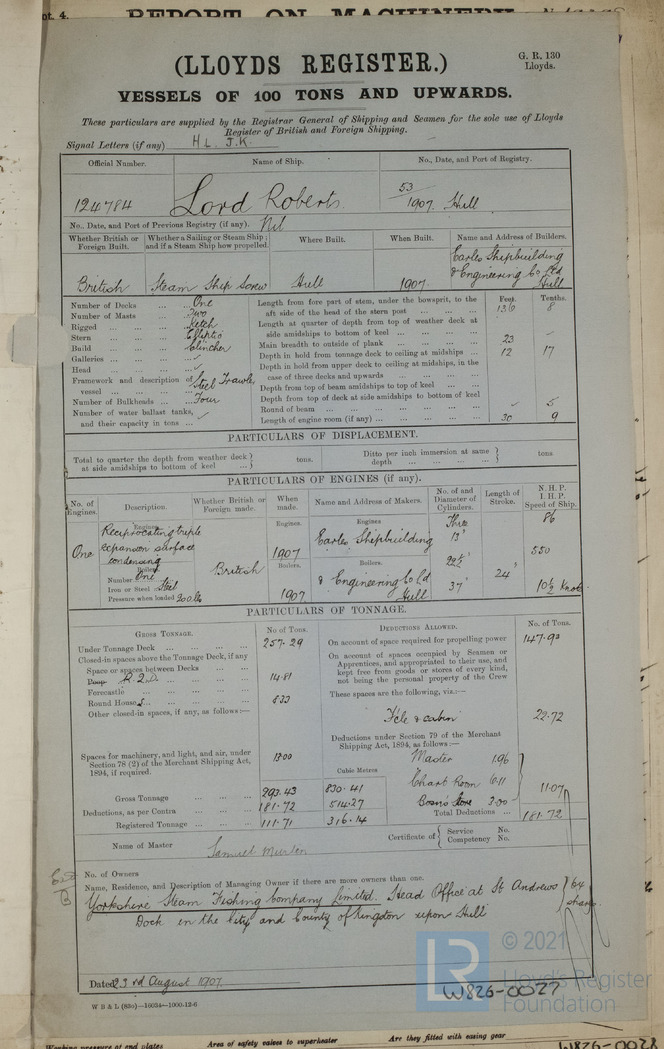 pt. 4.
REPORT ON MACHINERY
(LLOYDS REGISTER.)
G. R. 130
Lloyds.
VESSELS OF 100 TONS AND UPWARDS.
These particulars are supplied by the Registrar General of Shipping and Seamen for the sole use of Lloyds
Register of British and Foreign Shipping.
Signal Letters (if any) H L. J. K.
Official Number. Name of Ship. No., Date, and Port of Registry.
124784 Lord Roberts 53/1907 Hull
No., Date, and Port of Previous Registry (if any). Nil
Whether British or Foreign Built. Whether a Sailing or Steam Ship; and if a Steam Ship how propelled. Where Built. When Built. Name and Address of Builders.
British Steam Ship Screw Hull 1907 Earles Shipbuilding & Engineering Co Ltd Hull
Number of Decks ... ... One
Number of Masts ... ... Two
Rigged ... ... Ketch
Stern ... ... Elliptic
Build ... ... Clincher
Galleries ... ... ✓
Head ... ... ✓
Framework and description of vessel ... ... Steel Trawler
Number of Bulkheads ... ... Four
Number of water ballast tanks, and their capacity in tons ... ✓
Feet. Tenths.
Length from fore part of stem, under the bowsprit, to the aft side of the head of the stern post ... 130 8
Length at quarter of depth from top of weather deck at side amidships to bottom of keel ...
Main breadth to outside of plank ... 23 –
Depth in hold from tonnage deck to ceiling at midships ... 12 17
Depth in hold from upper deck to ceiling at midships, in the case of three decks and upwards ...
Depth from top of beam amidships to top of keel ...
Depth from top of deck at side amidships to bottom of keel
Round of beam ... - 5
Length of engine room (if any) ... 30 9
PARTICULARS OF DISPLACEMENT.
Total to quarter the depth from weather deck at side amidships to bottom of keel ... tons. Ditto per inch immersion at same depth ... tons
PARTICULARS OF ENGINES (if any).
No. of Engines. Description. Whether British or Foreign made. When made. Name and Address of Makers. No. of and Diameter of Cylinders. Length of Stroke. N. H. P. I. H. P. Speed of Ship.
One
Engines.
Reciprocating triple expansion surface condensing
Boilers.
Number One
Iron or Steel Steel
Pressure when loaded 200 lbs
British
Engines. 1907
Boilers. 1907
Engines. Earles Shipbuilding
Boilers. & Engineering Co Ld Hull
Three
13"
22½"
37"
24"
86
550
10½ Knots
PARTICULARS OF TONNAGE.
GROSS TONNAGE. No of Tons.
Under Tonnage Deck ... 257.29
Closed-in spaces above the Tonnage Deck, if any
Space or spaces between Decks ...
Poop R. 2. D. ... 14.81
Forecastle ...
Round Houses ... 8.33
Other closed-in spaces, if any, as follows:—
Spaces for machinery, and light, and air, under Section 78 (2) of the Merchant Shipping Act, 1894, if required. 13.00
Cubic Metres
Gross Tonnage ... 293.43 830.41
Deductions, as per Contra ... 181.72 514.27
Registered Tonnage ... 111.71 316.14
DEDUCTIONS ALLOWED. No. of Tons.
On account of space required for propelling power 147.93
On account of spaces occupied by Seamen or Apprentices, and appropriated to their use, and kept free from goods or stores of every kind, not being the personal property of the Crew
These spaces are the following, viz.:—
F'cle & cabin 22.72
Deductions under Section 79 of the Merchant Shipping Act, 1894, as follows:—
Master 1.96
Chart Room 6.11
Bosns Store 3.00
11.07
Total Deductions ... 181.72
Name of Master
Certificate of Service No. Competency No.
No. of Owners
Name, Residence, and Description of Managing Owner if there are more owners than one.
Yorkshire Steam Fishing Company Limited. Head Office at St Andrews
Dock in the City and County of Kingston upon Hull
64 shares
Dated 23rd August 1907
W B & L (83o)—10034—1000-12-6
© 2021
Lloyd's Register
Foundation
W826-0027
Working pressure of end plates
Area of safety valves to superheater
Are they fitted with easing gear
W826-0028